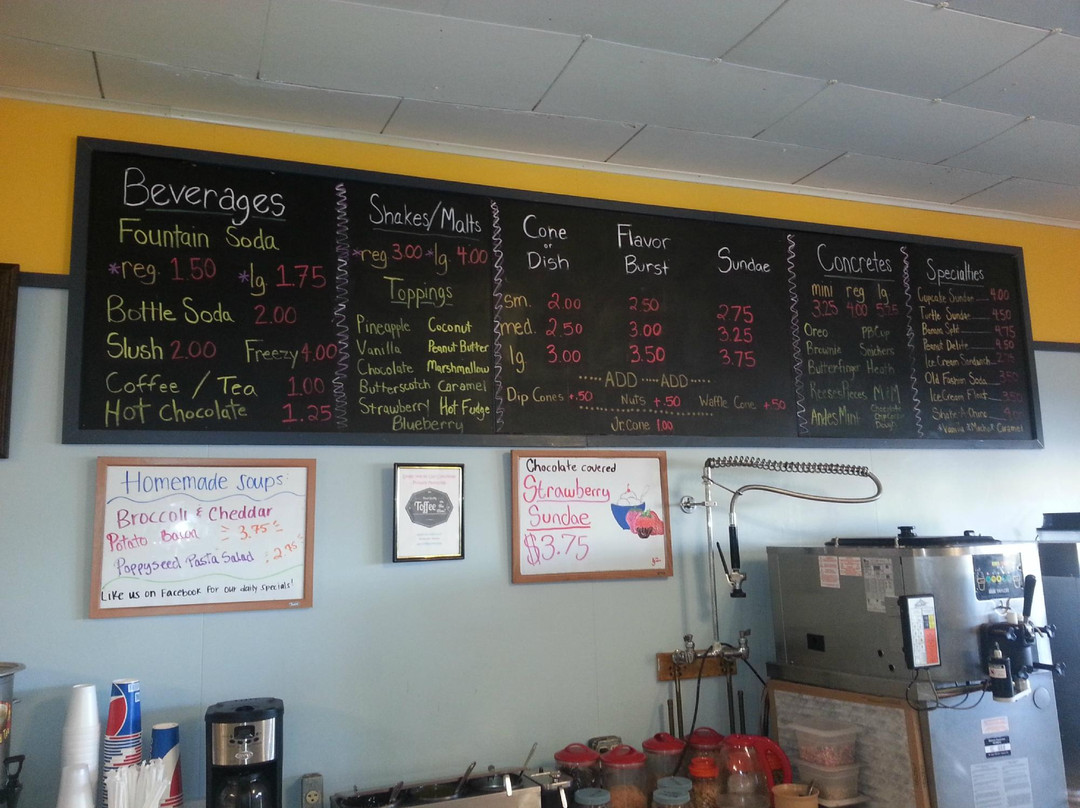 Beverages
Fountain Soda
*reg. 1.50 *lg. 1.75
Bottle Soda 2.00
Slush 2.00 Freezy 4.00
Coffee / Tea 1.00
Hot Chocolate 1.25
Shakes/Malts
*reg 3.00 *lg. 4.00
Toppings
Pineapple Coconut
Vanilla Peanut Butter
Chocolate Marshmallow
Butterscotch Caramel
Strawberry Hot Fudge
Blueberry
Cone or Dish Flavor Burst Sundae
sm. 2.00 2.50 2.75
med. 2.50 3.00 3.25
lg 3.00 3.50 3.75
ADD ADD
Dip Cones +.50 Nuts +.50 Waffle Cone +.50
Jr. Cone 1.00
Concretes
mini reg lg
3.25 4.00 5.75
Oreo PB Cup
Brownie Snickers
Butterfinger Heath
Reeses Pieces M&M
Andes Mint Chocolate Chip Cookie Dough
Specialties
Cupcake Sundae 4.00
Turtle Sundae 4.50
Banana Split 4.75
Peanut Delite 4.50
Ice Cream Sandwich
Old Fashion Soda
Ice Cream Float
Shake-A-Chino
*Vanilla *Mocha *Caramel
Homemade soups:
Broccoli & Cheddar
Potato Bacon 3.75
Poppyseed Pasta Salad : 2.75
Like us on Facebook for our daily specials!
Toffee
Chocolate covered
Strawberry
Sundae
$3.75